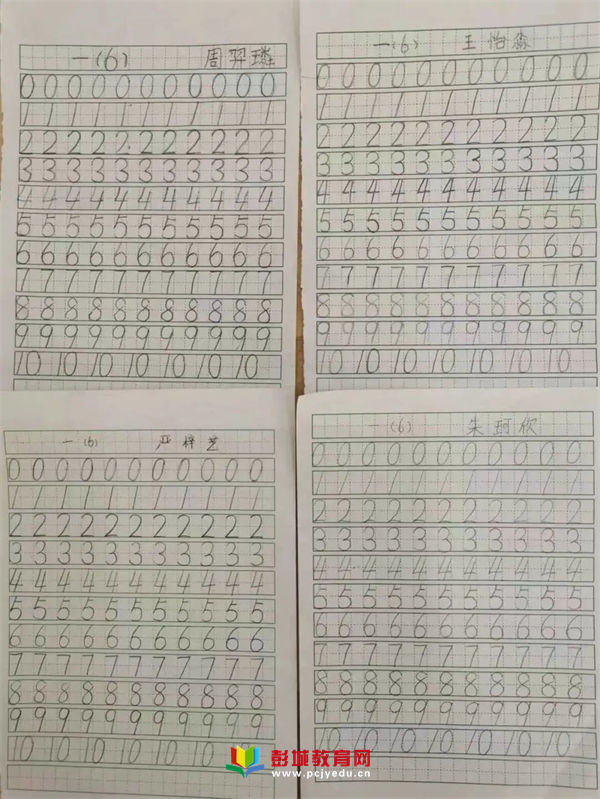 一(6) 周羿璘
0 0 0 0 0 0 0 0 0 0 0
1 1 1 1 1 1 1 1 1 1 1
2 2 2 2 2 2 2 2 2 2 2
3 3 3 3 3 3 3 3 3 3 3
4 4 4 4 4 4 4 4 4 4 4
5 5 5 5 5 5 5 5 5 5 5
6 6 6 6 6 6 6 6 6 6 6
7 7 7 7 7 7 7 7 7 7 7
8 8 8 8 8 8 8 8 8 8 8
9 9 9 9 9 9 9 9 9 9 9
10 10 10 10 10 10 10
一(6) 王怡淼
0 0 0 0 0 0 0 0 0 0 0
1 1 1 1 1 1 1 1 1 1 1
2 2 2 2 2 2 2 2 2 2 2
3 3 3 3 3 3 3 3 3 3 3
4 4 4 4 4 4 4 4 4 4 4
5 5 5 5 5 5 5 5 5 5 5
6 6 6 6 6 6 6 6 6 6 6
7 7 7 7 7 7 7 7 7 7 7
8 8 8 8 8 8 8 8 8 8 8
9 9 9 9 9 9 9 9 9 9 9
10 10 10 10 10 10 10
一(6) 严梓艺
0 0 0 0 0 0 0 0 0 0 0
1 1 1 1 1 1 1 1 1 1 1
2 2 2 2 2 2 2 2 2 2 2
3 3 3 3 3 3 3 3 3 3 3
4 4 4 4 4 4 4 4 4 4 4
5 5 5 5 5 5 5 5 5 5 5
6 6 6 6 6 6 6 6 6 6 6
7 7 7 7 7 7 7 7 7 7 7
8 8 8 8 8 8 8 8 8 8 8
9 9 9 9 9 9 9 9 9 9 9
10 10 10 10 10 10
一(6) 朱珂欣
0 0 0 0 0 0 0 0 0 0 0
1 1 1 1 1 1 1 1 1 1 1
2 2 2 2 2 2 2 2 2 2 2
3 3 3 3 3 3 3 3 3 3 3
4 4 4 4 4 4 4 4 4 4 4
5 5 5 5 5 5 5 5 5 5 5
6 6 6 6 6 6 6 6 6 6 6
7 7 7 7 7 7 7 7 7 7 7
8 8 8 8 8 8 8 8 8 8 8
9 9 9 9 9 9 9 9 9 9 9
10 10 10 10 10 10 10
彭城教育网
www.pcjyedu.cn